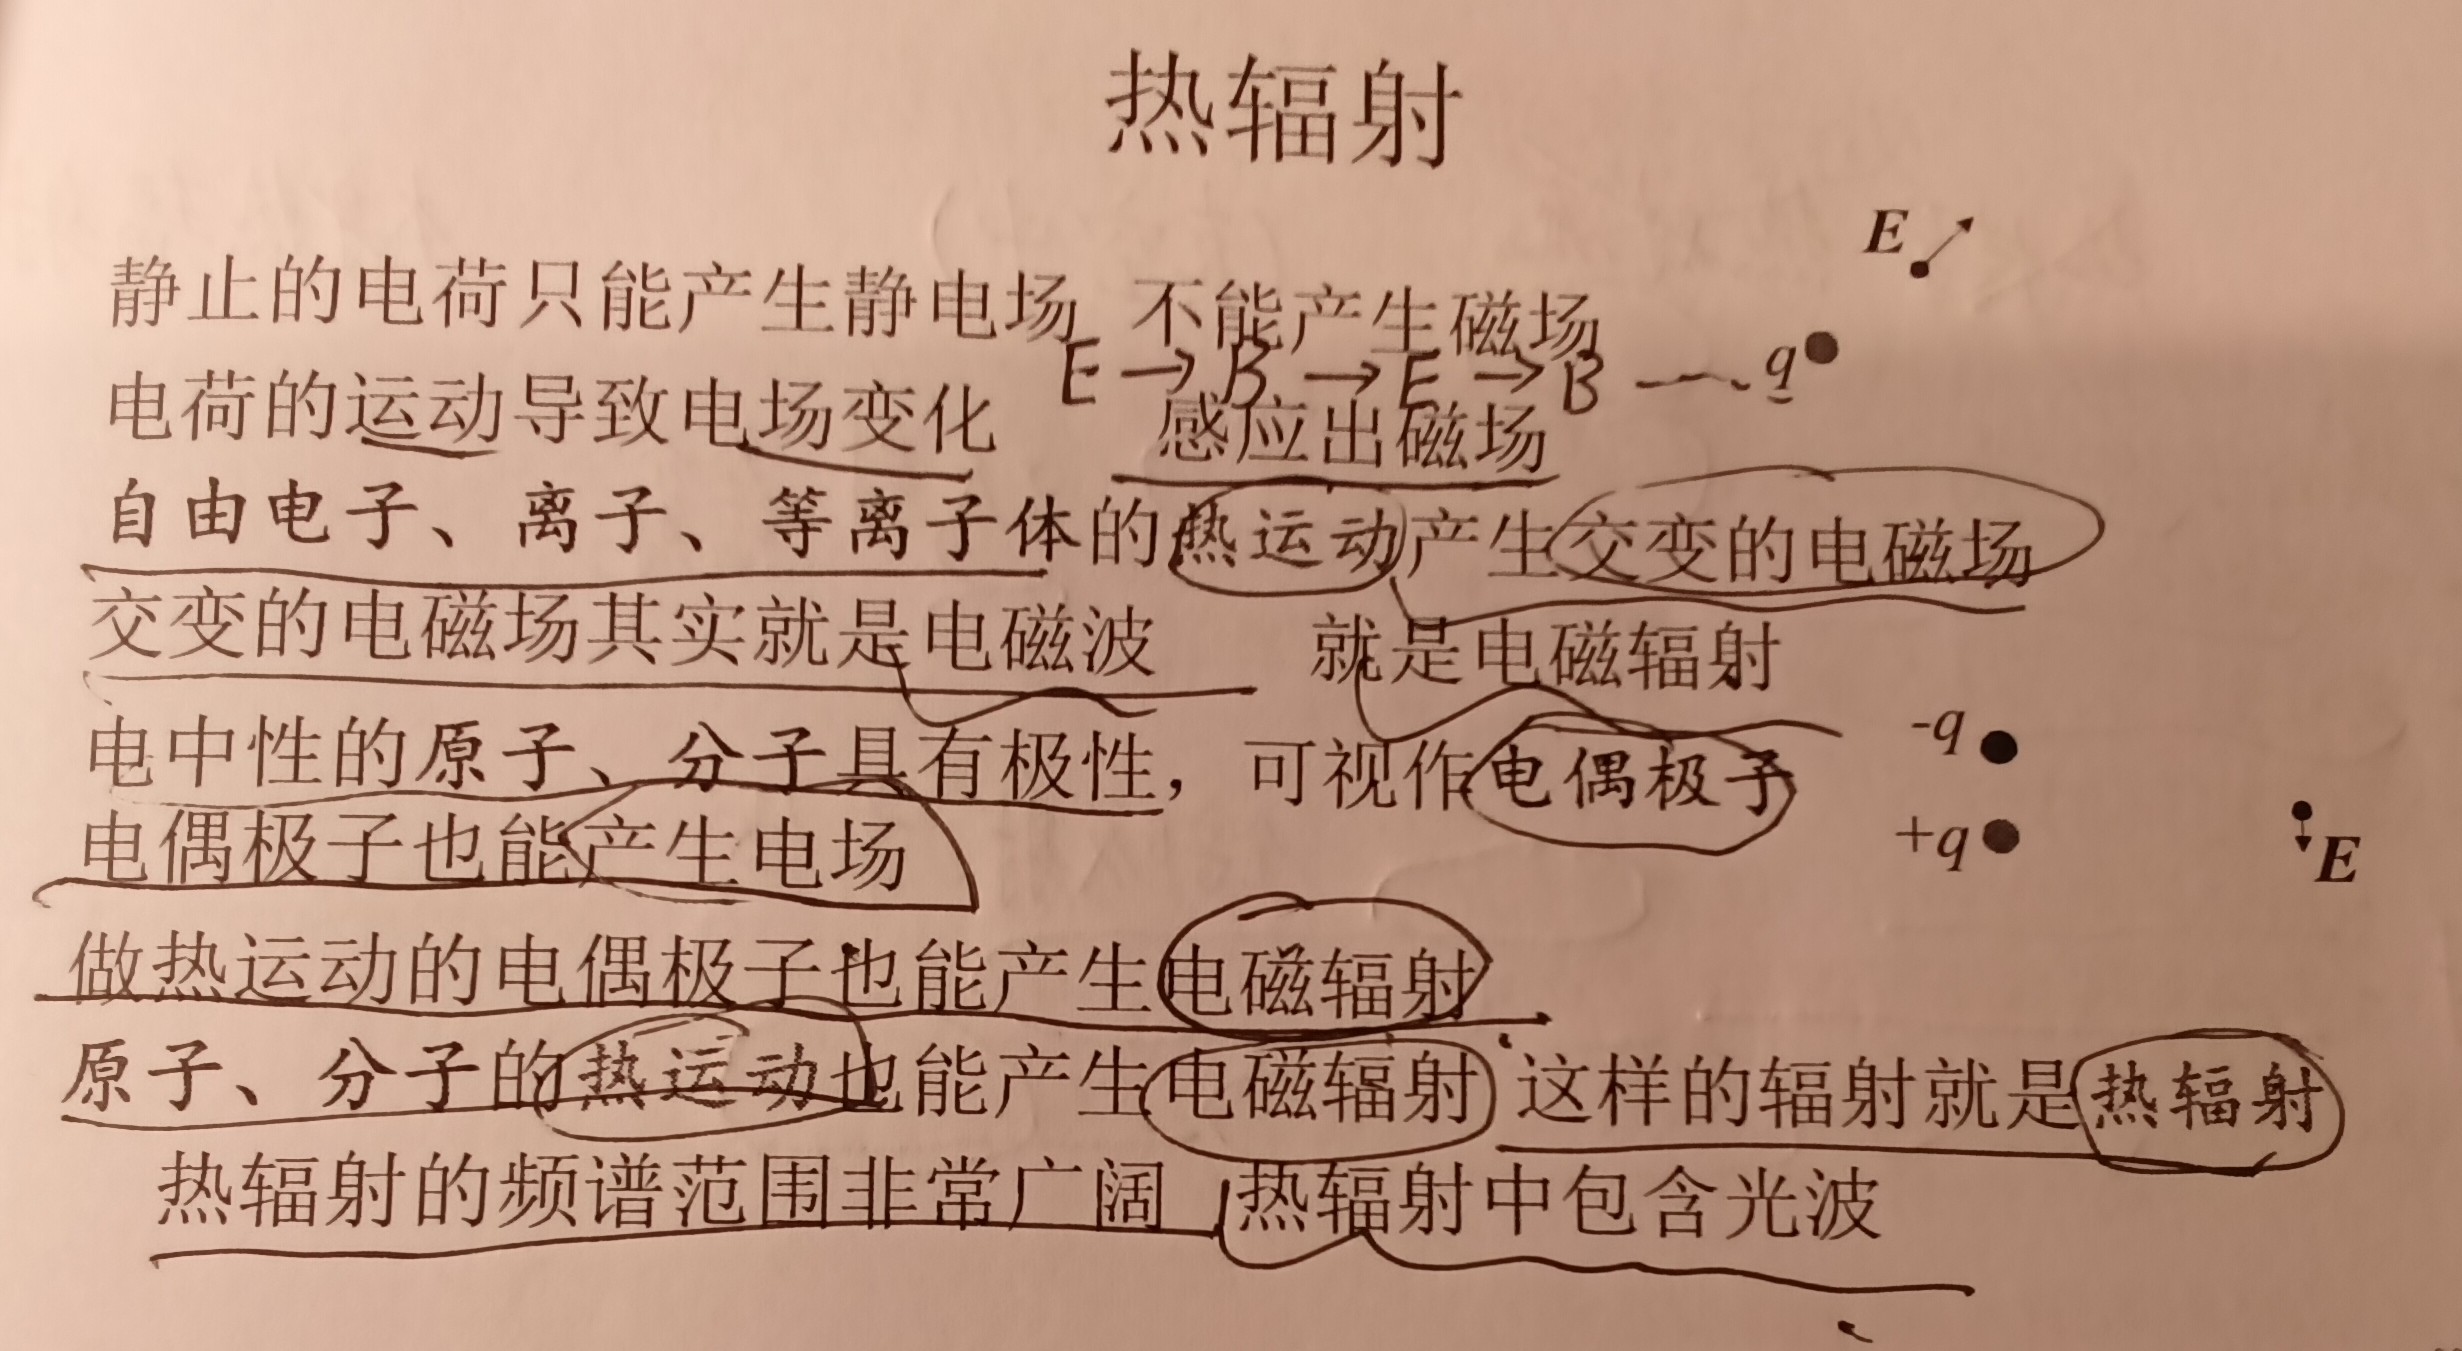 热辐射
E
静止的电荷只能产生静电场 不能产生磁场
E→B→E→B
q
电荷的运动导致电场变化 感应出磁场
自由电子、离子、等离子体的热运动产生交变的电磁场
交变的电磁场其实就是电磁波 就是电磁辐射
-q
电中性的原子、分子具有极性，可视作电偶极子
+q
E
电偶极子也能产生电场
做热运动的电偶极子也能产生电磁辐射
原子、分子的热运动也能产生电磁辐射 这样的辐射就是热辐射
热辐射的频谱范围非常广阔 热辐射中包含光波